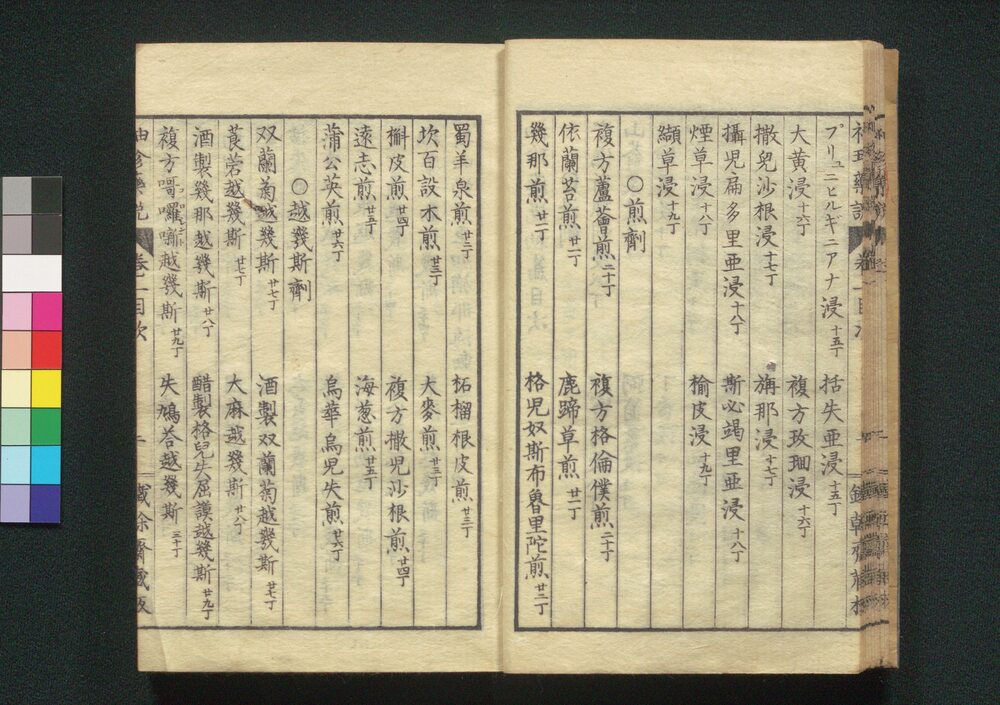 プリュニヒルギニアナ浸 十五丁 括失亜浸 十五丁
大黄浸 十六丁 複方玫瑰浸 十六丁
撒兒沙根浸 十七丁 旃那浸 十七丁
攝兒扁多里亜浸 十八丁 斯必竭里亜浸 十八丁
煙草浸 十八丁 楡皮浸 十九丁
纈草浸 十九丁
○煎劑
複方蘆薈煎 二十丁 複方格倫僕煎 二十丁
依蘭苔煎 廿一丁 鹿蹄草煎 廿一丁
幾那煎 廿一丁 格児奴斯布魯里陀煎 廿二丁
蜀羊泉煎 廿二丁 柘榴根皮煎 廿三丁
坎百設木煎 廿三丁 大麥煎 廿三丁
槲皮煎 廿四丁 複方撒児沙根煎 廿四丁
遠志煎 廿五丁 海葱煎 廿五丁
蒲公英煎 廿六丁 烏華烏児失煎 廿六丁
○越幾斯劑
双蘭菊越幾斯 廿七丁 酒製双蘭菊越幾斯 廿七丁
莨菪越幾斯 廿七丁 大麻越幾斯 廿八丁
酒製幾那越幾斯 廿八丁 醋製格兒失屈謨越幾斯 廿九丁
複方 越幾斯 廿九丁 失鳩荅越幾斯 三十丁
卷二目次 二 蔵版